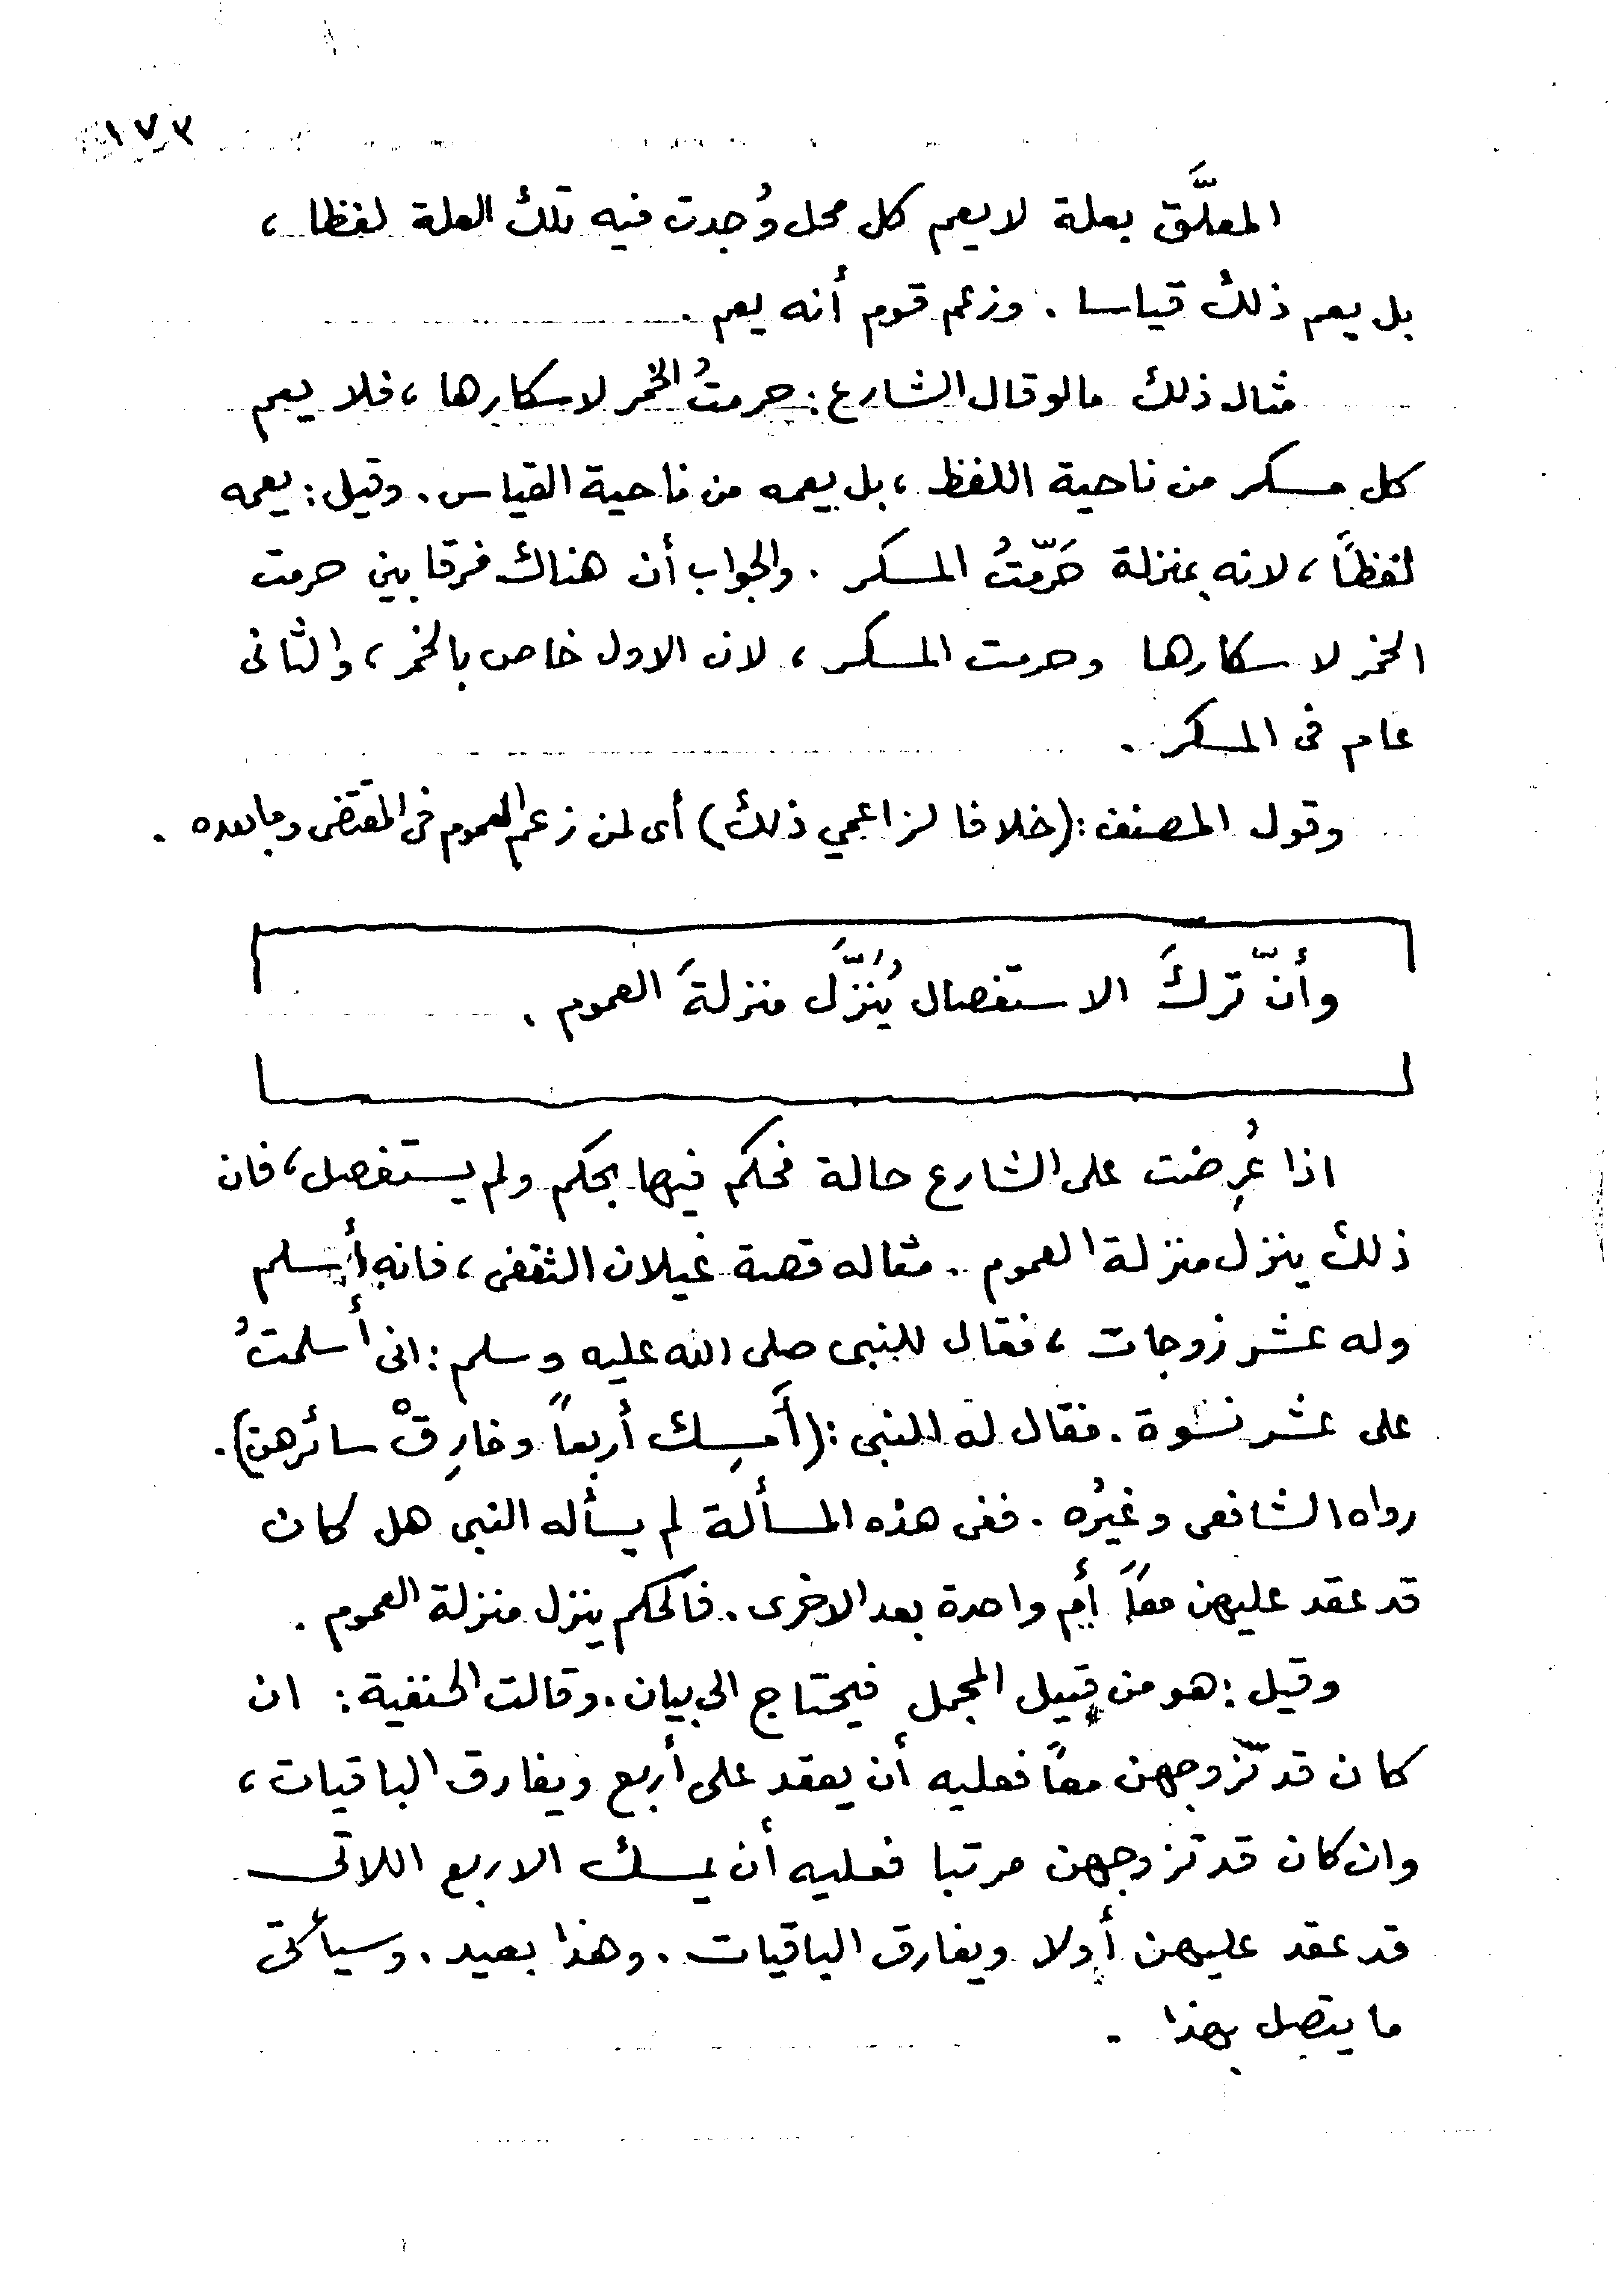 ١٧٣
المعلَّق بعلة لا يعم كل محل وُجدت فيه تلك العلة لفظا ،
بل يعم ذلك قياسا . وزعم قوم أنه يعم .
مثال ذلك ما لو قال الشارع : حرمتُ الخمر لاسكارها ، فلا يعم
كل مسكر من ناحية اللفظ ، بل يعمه من ناحية القياس . وقيل : يعمه
لفظاً ، لانه بمنزلة حَرّمتُ المسكر . والجواب أن هناك فرقا بين حرمت
الخمر لاسكارها وحرمت المسكر ، لان الاول خاص بالخمر ، والثانى
عام فى المسكر .
وقول المصنف : (خلافا لزاعمي ذلك) أى لمن زعم العموم فى المقتضى وما بعده .
وأنّ تركَ الاستفصال يُنَزَّل منزلةَ العموم .
اذا عُرِضت على الشارع حالة فحكم فيها بحكم ولم يستفصل ، فان
ذلك ينزل منزلة العموم . مثاله قصة غيلان الثقفى ، فانه أسلم
وله عشر زوجات ، فقال للنبى صلى الله عليه وسلم : انى أسلمتُ
على عشر نسوة . فقال له النبى : (أَمسِك أربعاً وفارِقْ سائرهن) .
رواه الشافعى وغيرُه . ففى هذه المسألة لم يسأله النبى هل كان
قد عقد عليهن معاً أم واحدة بعد الاخرى . فالحكم ينزل منزلة العموم .
وقيل : هو من قبيل المجمل فيحتاج الى بيان . وقالت الحنفية : ان
كان قد تزّوجهن معاً فعليه أن يعقد على أربع ويفارق الباقيات ،
وان كان قد تزوجهن مرتبا فعليه أن يمسك الاربع اللاتى
قد عقد عليهن أولا ويفارق الباقيات . وهذا بعيد . وسيأتى
ما يتصل بهذا .